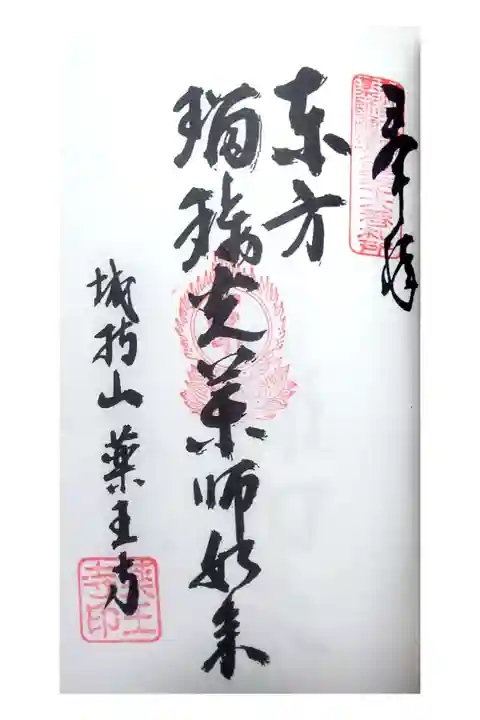 奉拝
东方
瑠璃光薬師如来
城持山 薬王寺
薬王寺印